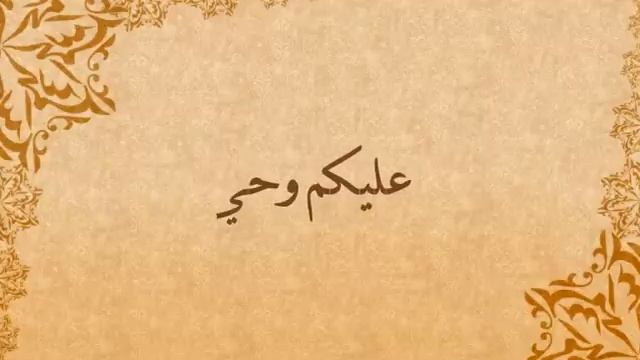 عليكم وحي